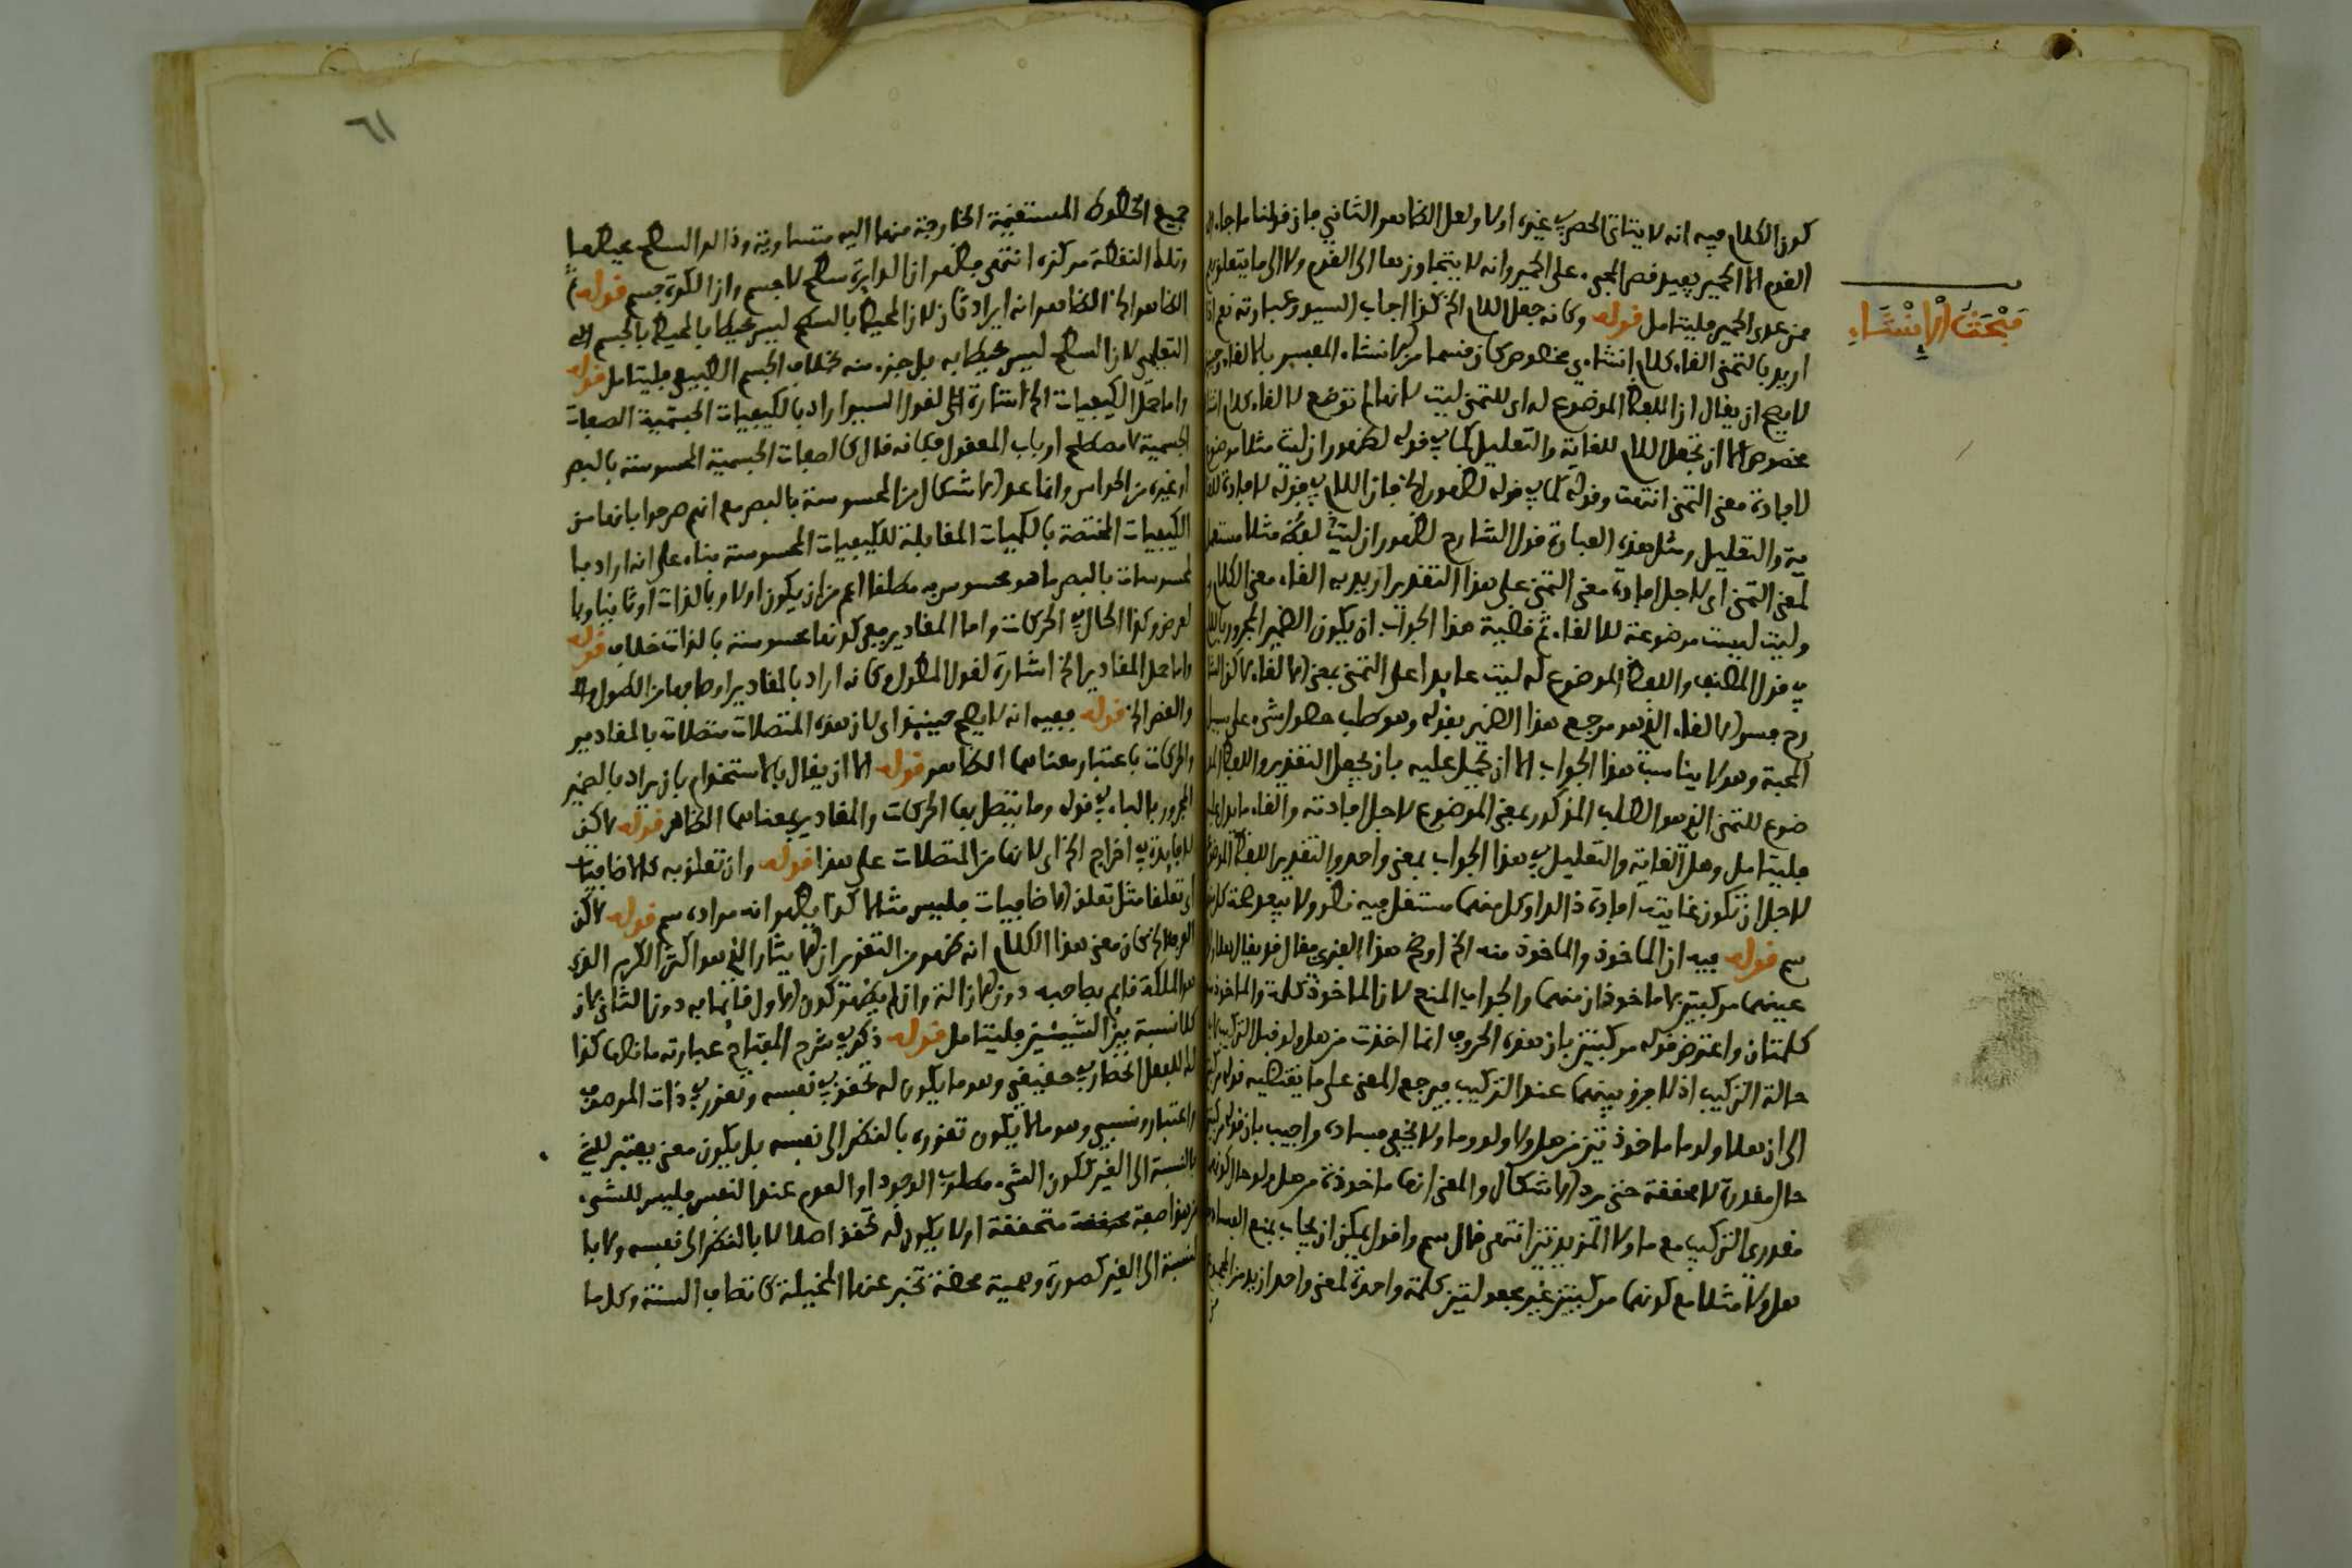 مبحث الإنشاء
كون الكلام فيه انه لا يتاتى الحصر في غيره اولا ولعل الظاهر الثاني فان قولنا ما جاء
القوم الا الحمير يفيد قصر المجيء على الحمير وانه لا يتجاوزها الى القوم ولا الى ما يتعلق بهم
ممن عدى الحمير فليتامل قوله وكانه جعل اللام الخ كذا اجاب السيد وعبارته نعم اذا
اريد بالتمني القاء كلام انشاءي مخصوص كان قسما من الانشاء المفسر بالالقاء وحينئذ
لا يصح ان يقال ان اللفظ الموضوع له اي للتمني ليت لانها لم توضع لالقاء كلام انشاءي
مخصوص الا ان تجعل اللام للغاية والتعليل كما في قوله لظهور ان ليت مثلا موضوع
لافادة معنى التمني انتهت وقوله كما في قوله لظهور الخ فان اللام في قوله لافادة للغا
ية والتعليل ومثل هذه العبارة قول الشارح لظهور ان ليت لفظة مثلا مستعمل
لمعنى التمني اي لاجل افادة معنى التمني على هذا التقدير اريد به القاء معنى الكلام
وليت ليست موضوعة للالقاء ثم قضية هذا الجواب ان يكون الضمير المجرور باللام
في قول المصنف واللفظ الموضوع له ليت عايدا على التمني بمعنى الالقاء لاكن الشا
رح فسر الالقاء الذي هو مرجع هذا الضمير بقوله وهو طلب حصول شيء على سبيل
المحبة وهو لا يناسب هذا الجواب الا ان يحمل عليه بان يجعل التقدير واللفظ المو
ضوع للتمني الذي هو الطلب المذكور بمعنى الموضوع لاجل افادته والقاء ما يدل عليه
فليتامل وهل الغاية والتعليل في هذا الجواب بمعنى واحد والتقدير اللفظ الموضوع
لاجل ان تكون غايته افادة ذالك او كل منهما مستقل فيه نظر ولا يبعد صحة كل منهما
سم قوله فيه ان الماخوذ والماخوذ منه الخ اوضح هذا الفنري فقال قد يقال هلا ولولا
عينهما مركبتين لا ماخوذان منهما والجواب المنع لان الماخوذ كلمة والماخوذ منه
كلمتان واعترض قوله مركبتين بان هذه الحروف انما اخذت من هل ولو قبل التركيب لا
حالة التركيب اذ لا فرق بينهما عند التركيب فيرجع المعنى على ما يقتضيه قوله مركبتين
الى ان هلا ولوما ماخوذتين من هلا ولا ولو وما ولا يخفى فساده واجيب بان قوله مركبتين
حال مقدرة لا محققة حتى يرد الاشكال والمعنى انها ماخوذة من هل ولو حال كونهما
مقدري التركيب مع ما ولا المزيدتين انتهى قال سم واقول يمكن ان يجاب بمنع الفساد
هل ولا مثلا مع كونهما مركبتين غير مجعولتين كلمة واحدة لمعنى واحد ازيد من المجموع
٦١
جميع الخطوط المستقيمة الخارجة منها اليه متساوية وذالك السطح محيطها
وتلك النقطة مركزه انتهى فظهر ان الدايرة سطح لا جسم وان الكرة جسم قوله
الظاهر الخ الظاهر انه ايراد ثان لان المحيط بالسطح ليس محيطا بالمحيط بالجسم
التعليمي لان السطح ليس محيطا به بل جزء منه بخلاف الجسم الطبيعي فليتامل قوله
واما حمل الكيفيات الخ اشارة الى لقول السيد اراد بالكيفيات الجسمية الصفات
الجسمية لا مصطلح ارباب المعقول فكانه قال كالصفات الجسمية المحسوسة بالبصر
او غيره من الحواس وانما عد الاشكال من المحسوسة بالبصر مع انهم صرحوا بانها من
الكيفيات المختصة بالكميات المقابلة للكيفيات المحسوسة بناء على انه اراد با
لمحسوسات بالبصر ما هو محسوس به مطلقا اعم من ان يكون اولا وبالذات او ثانيا وبا
لعرض وكذا الحال في الحركات واما المقادير ففي كونها محسوسة بالذات خلاف قوله
واما حمل المقادير الخ اشارة لقول المطول وكانه اراد بالمقادير اوصافها من الطول
والقصر الخ قوله ففيه انه لا يصح حينئذ اي لان هذه المتصلات متصلات بالمقادير
والحركات باعتبار معناهما الظاهر قوله الا ان يقال بالاستخدام بان يراد بالضمير
المجرور بالباء في قوله وما يتصل بها الحركات والمقادير بمعناهما الظاهر قوله لاكن
لا فايدة في اخراج الخ اي لانها من المتصلات على هذا قوله وان تعلق به كالاضافيات
اي تعلقا مثل تعلق الاضافيات فليس مثالا كذا يظهر انه مراده سم قوله لاكن
معنى هذا الكلام انه ظهر من التقدير ان الايثار الذي هو اكثر الكرم الذي
هو الملكة قايم بصاحبه دون الاذان وان لم يظهر كون الاول قايما به دون الثاني لان
كلا نسبة بين الشيئين فليتامل قوله ذكر في شرح المفتاح عبارته ما نصها كذا
للعقل الخطاب حقيقي وهو ما يكون له تحقق في نفسه وتقرر في ذات الموصوف
واعتبار ونسبي وهو ما لا يكون تقرره بالنظر الى نفسه بل يكون معنى يعتبر للشي
بالنسبة الى الغير ككون الشيء مطلوب الوجود او العدم عند النفس فليس للشيء
من هذا صفة متحققة او لا يكون له تحقق اصلا لا بالنظر الى نفسه ولا با
لنسبة الى الغير كصورة وهمية محضة تخبر عنها المخيلة كاتصاف السنة وكل ما